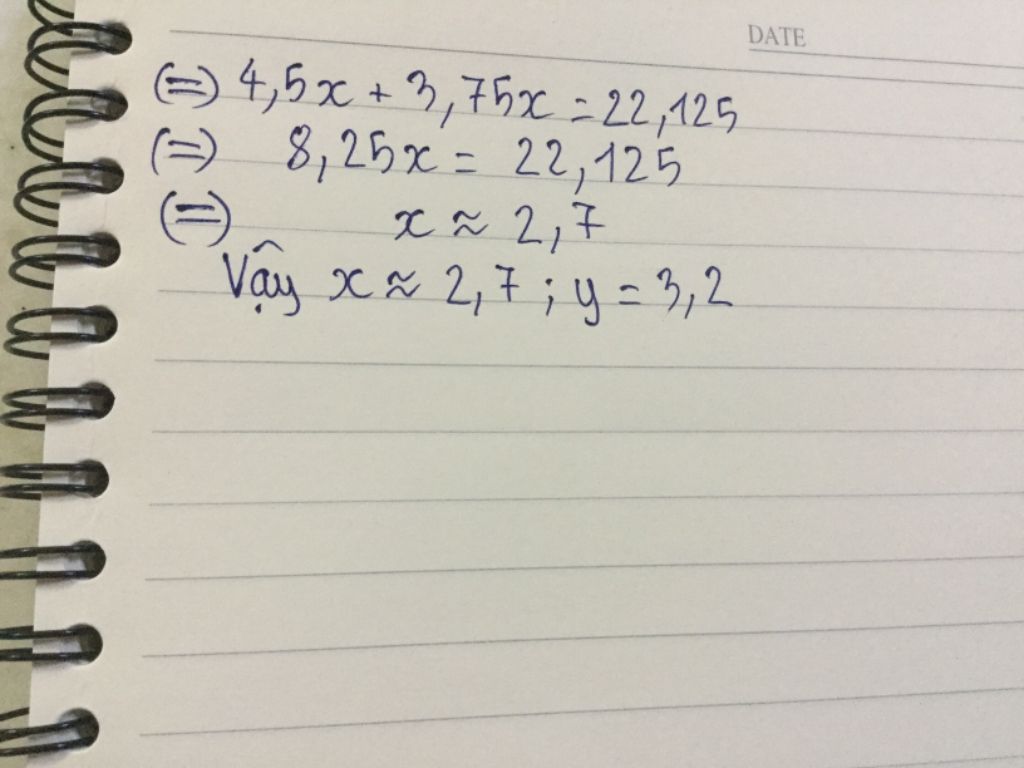 DATE
(=) 4,5x + 3,75x = 22,125
(=) 8,25x = 22,125
(=) x ≈ 2,7
Vậy x ≈ 2,7 ; y = 3,2